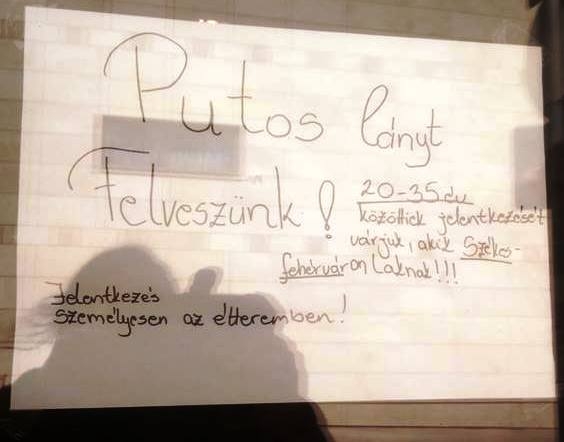 Putos lányt
Felveszünk!
20-35 év
közöttiek jelentkezését
várjuk, akik Székes-
fehérváron laknak!!!
Jelentkezés
személyesen az étteremben!